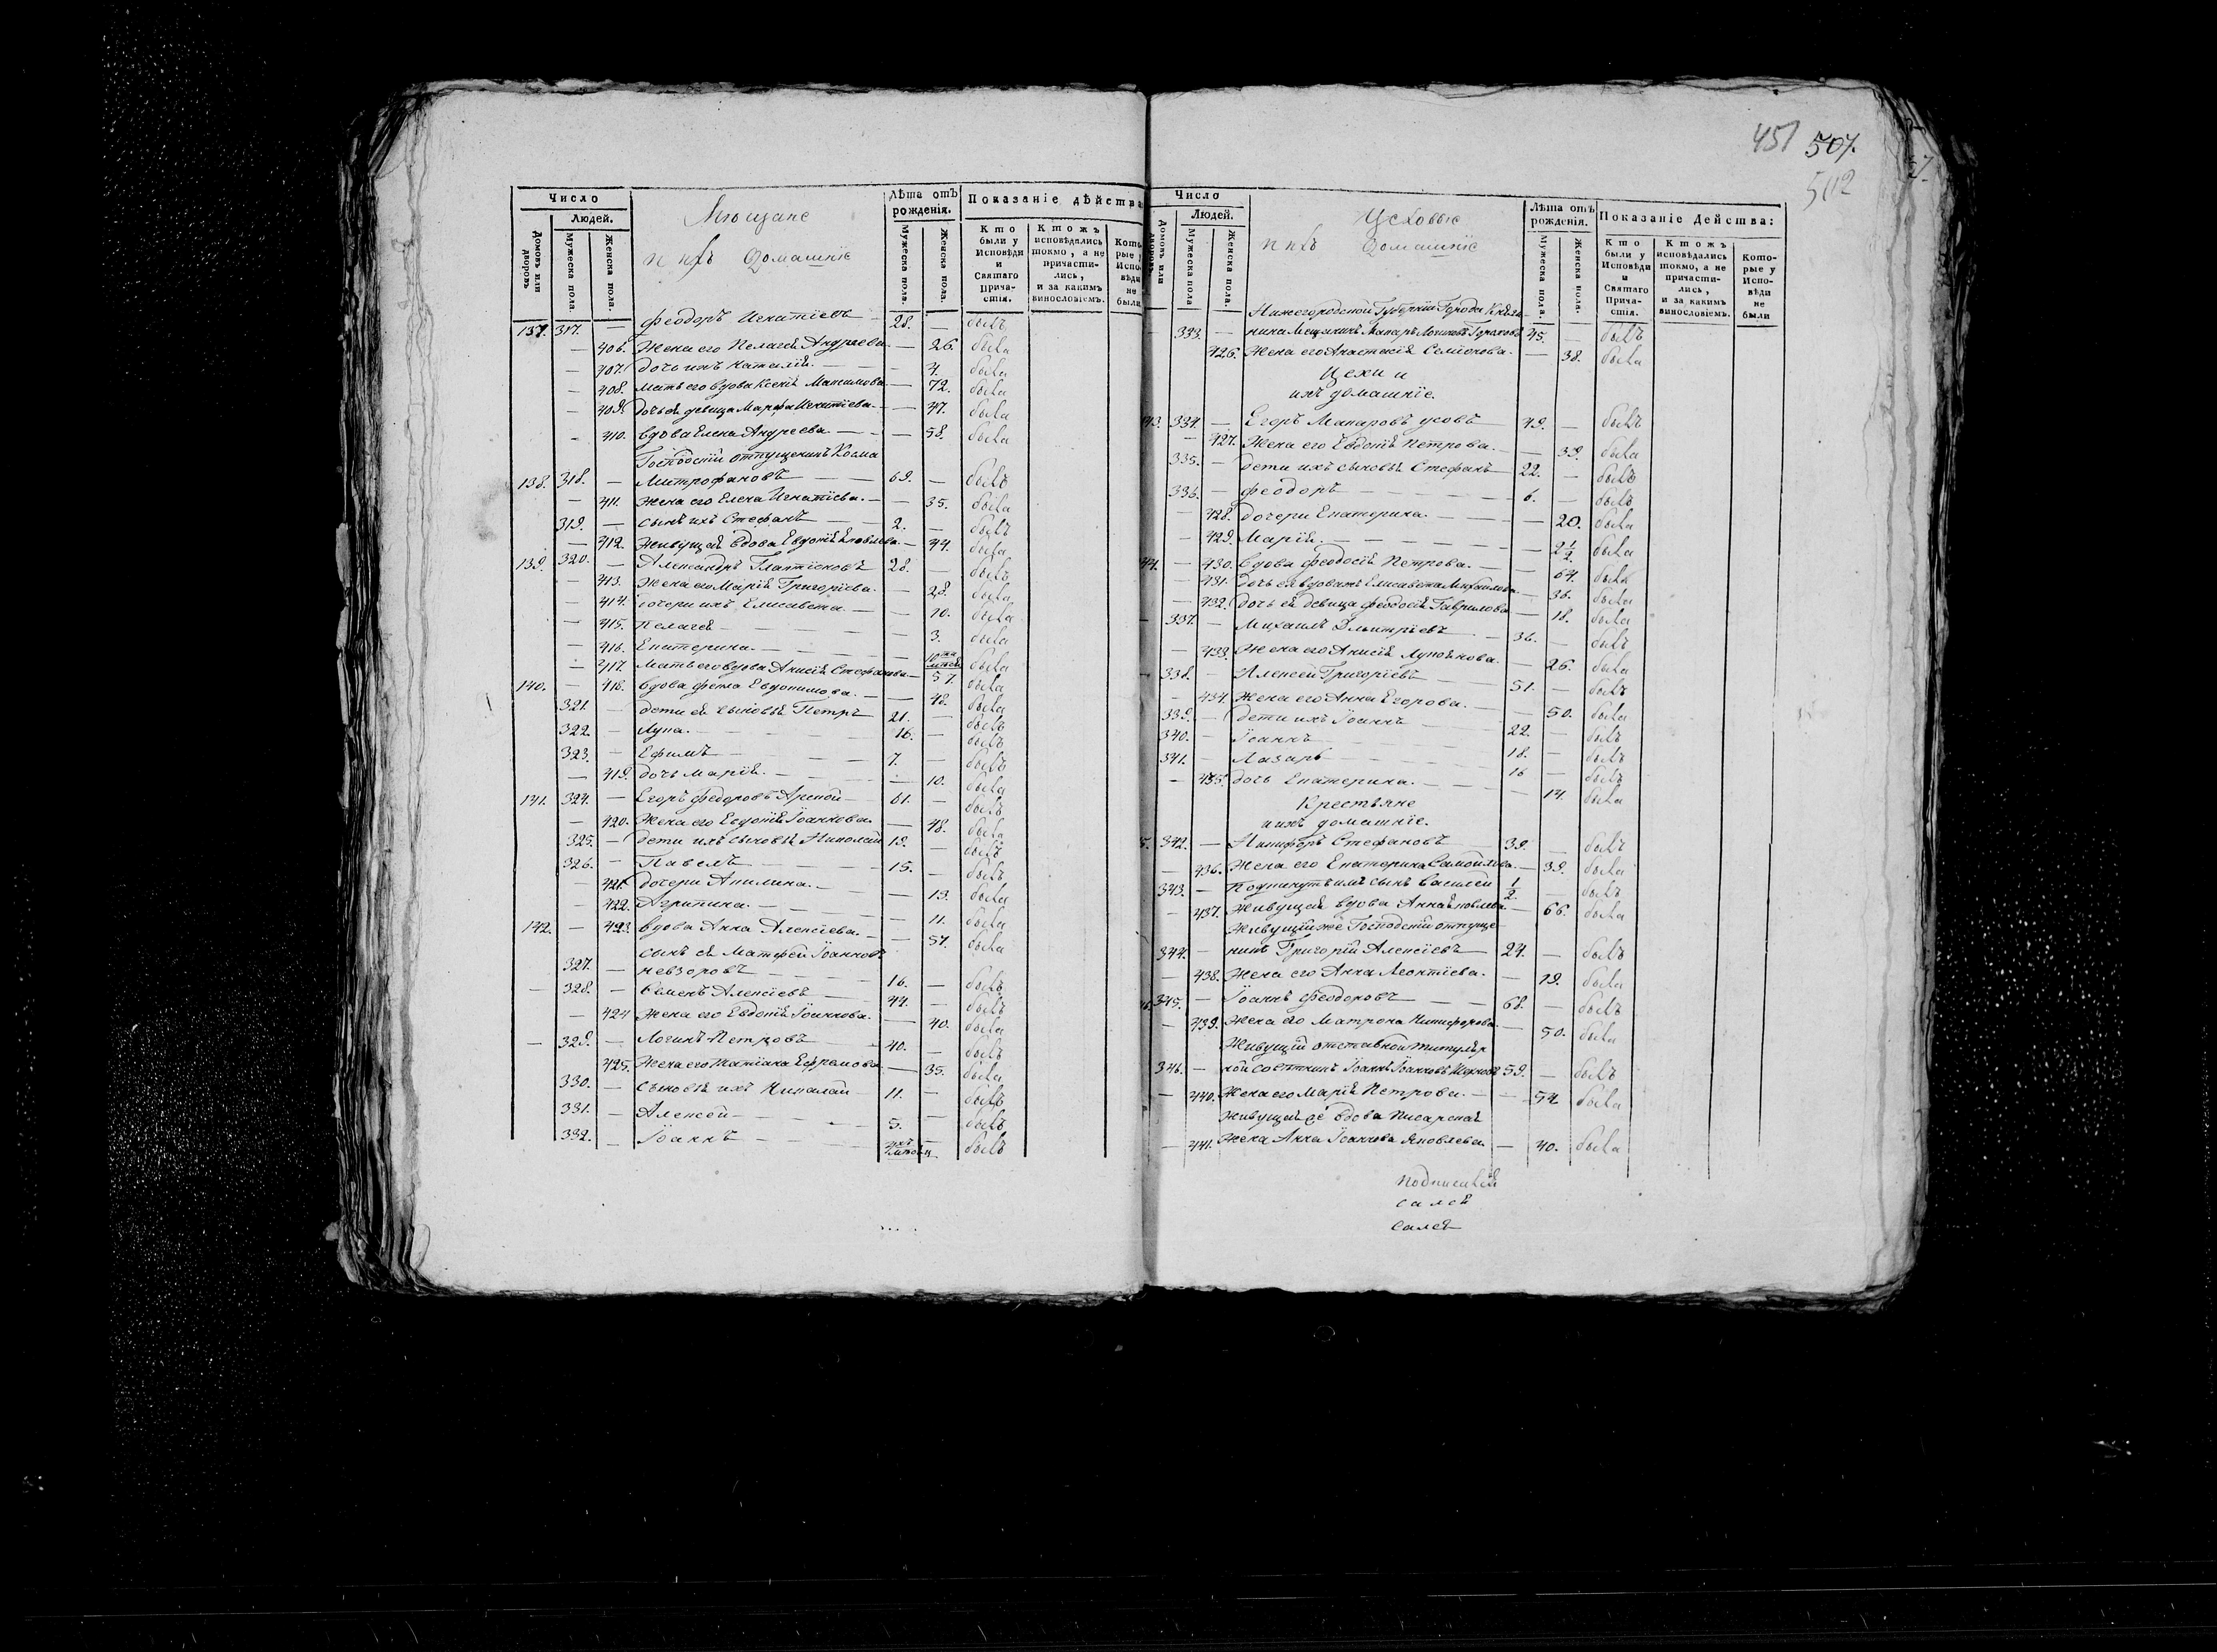 451 507.
502
Число
Людей.
Домовъ или дворовъ
Мужеска пола.
Женска пола.
Мѣщане
и ихъ домашніе
Лѣта отъ рожденія.
Мужеска пола.
Женска пола.
Показаніе дѣйства
Кто были у Исповѣди и Святаго Прича-стія.
Ктожъ исповѣдались токмо, а не причасти-лись, и за какимъ винословіемъ.
Кото рые у Испо вѣди не были
137. 317. — Феодоръ Игнатіевъ 28. — былъ
— 406. Жена его Пелагея Андреева — 26. была
— 407. дочь ихъ Наталія — 4. была
— 408. Мать его вдова Ксенія Максимова — 72. была
— 409. дочь ея девица Марфа Игнатіева — 47. была
— 410. вдова Елена Андреева — 58. была
Господскій отпущеникъ Косма
138. 318. — Митрофановъ 69. — былъ
— 411. Жена его Елена Игнатіева — 35. была
319. — сынъ ихъ Стефанъ 2. — былъ
— 412. Живущая вдова Евдокія Яковлева — 44. была
139. 320. — Александръ Платоновъ 28. — былъ
— 413. Жена его Марія Григоріева — 28. была
— 414. дочери ихъ Елисавета — 10. была
— 415. Пелагея — 3. была
— 416. Екатерина — была
— 417. Мать его вдова Анисія Стефанова — 57. была
140. — 418. вдова Фекла Евдокимова — 48. была
321. — дети ея сыновья Петръ 21. — былъ
322. — Лупа 16. — былъ
323. — Ефимъ 7. — былъ
— 419. дочь Марія — 10. была
141. 324. — Егоръ Федоровъ 61. — былъ
— 420. Жена его Евдокія Іоаннова — 48. была
325. — дети ихъ сыновья Николай 19. — былъ
326. — Павелъ 15. — былъ
— 421. дочери Акилина — 13. была
— 422. Агрипина — 11. была
142. — 423. вдова Анна Алексіева — 57. была
сынъ ея Матфей Іоанновъ
327. — Невзоровъ 16. — былъ
— 328. — Семенъ Алексіевъ 44. — былъ
— 424 Жена его Евдокія Іоаннова — 40. была
— 329. — Логинъ Петровъ 40. — былъ
425. Жена его Татіана Ефремова — 35. была
330. — Сыновья ихъ Николай 11. — былъ
331. — Алексей 5. — былъ
332. — Іоаннъ былъ
Число
Людей.
Домовъ или дворовъ
Мужеска пола
Женска пола.
Цеховые
и ихъ домашніе
Лѣта отъ рожденія.
Мужеска пола.
Женска пола.
Показаніе Действа:
Кто были у Исповѣди и Святаго Прича-стія.
Ктожъ исповѣдались токмо, а не причасти-лись, и за какимъ винословіемъ.
Кото-рые у Испо-вѣди не были
Нижегородской Губерніи Города Княги
333. — нина Мещанинъ Макаръ Логиновъ 45. — былъ
426. Жена его Анастасія Семіонова — 38. была
Цехи и
ихъ домашніе.
334. — Егоръ Макаровъ Усовъ 49. — былъ
— 427. Жена его Евдокія Петрова — 39. была
335. — дети ихъ сыновья Стефанъ 22. — былъ
336. — Феодоръ 6. — былъ
— 428. дочери Екатерина — 20. была
— 429. Марія — 2 1/2 была
— 430. Вдова Феодосія Петрова — 64. была
— 431. дочь ея вдова Елисавета Михайлова — 36. была
— 432. дочь ея девица Феодосія Гаврилова — 18. была
337. — Михаилъ Дмитріевъ 36. — былъ
— 433. Жена его Анисія — 26. была
338. — Алексей Григоріевъ 51. — былъ
— 434. Жена его Анна Егорова — 50. была
339. — дети ихъ Іоаннъ 22. — былъ
340. — Іоаннъ 18. — былъ
341. — Лазарь 16 — былъ
— 435. дочь Екатерина — 14. была
Крестьяне
и ихъ домашніе.
342. — Никифоръ Стефановъ 39. — былъ
— 436. Жена его Екатерина Самойлова — 39. была
343. — Подкинутъ имъ сынъ Василей 1/2 — былъ
— 437. Живущая вдова Анна Яковлева — 66. была
Живущій же Господскій отпуще
344. — никъ Григорій Алексіевъ 24. — былъ
— 438. Жена его Анна Леонтіева — 19. была
345. — Іоаннъ Феодоровъ 68. — былъ
— 439. Жена его Матрона Никифорова — 50. была
Живущій отставной титуляр
346. — ной советникъ Іоаннъ Іоанновъ 59. — былъ
— 440. Жена его Марія Петрова — 54 была
Живущая вдова Писарская
— 441. Жена Анна Іоаннова Яковлева — 40. была